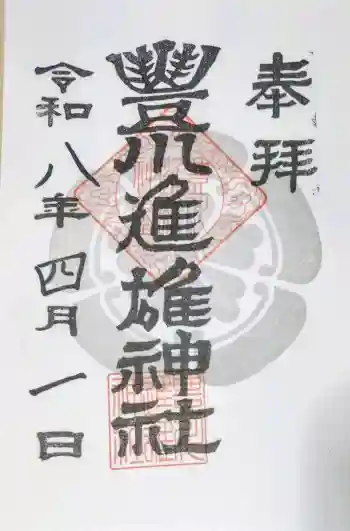 奉拝
豊川進雄神社
令和八年四月一日